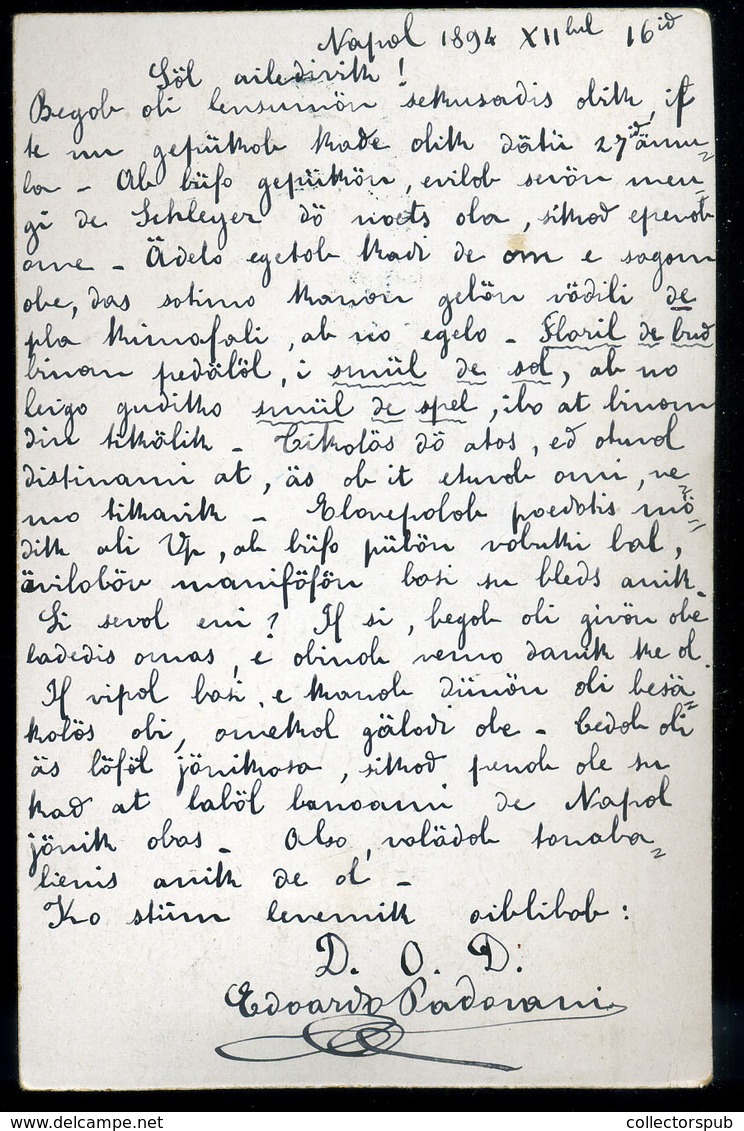 Napol 1894 XIIul 16id
Söl ailedivik!
Begob oli lensumön sekusadis obik, if
te nu gepükob kade olik dätü 27id ämu=
la - Ab büfo gepükön, evilob sevön men=
gi de Schleyer dö nods ola, sikod epenob
ome - Ädelo egetob kadi de om e sagom
obe, das sotimo kanon gebön vödili de
pla kimofali, ab no egelo - Floril de bud
binom pedälöl, i smül de sol, ab no
leigo gudiko smül de spel, ibo at binom
din tikälik - Tikolös dö atos, ed otuvol
distinami at, äs ob it etuvob omi, ve=
mo tikavik - Elovepolob poedotis mö=
dik ali Vp, ab büfo pübön vobuki bal,
äviloböv maniföfön basi su bleds anik.
Li sevol eni? If si, begob oli givön obe
ladedis omas, e obinob vemo danik ke ol.
If vipol basi, e kanob dünön oli besä=
kolös obi, omekol gälodi obe - Cedob oli
äs löföl jönikosa, sikod penob ole su
kad at laböl banoami de Napol
jönik obas - Also, valädob tonaba=
lienis anik de ol -
Ko stüm levemik oiblibob:
D. O. D.
Edoardo Padovani
collectorspub